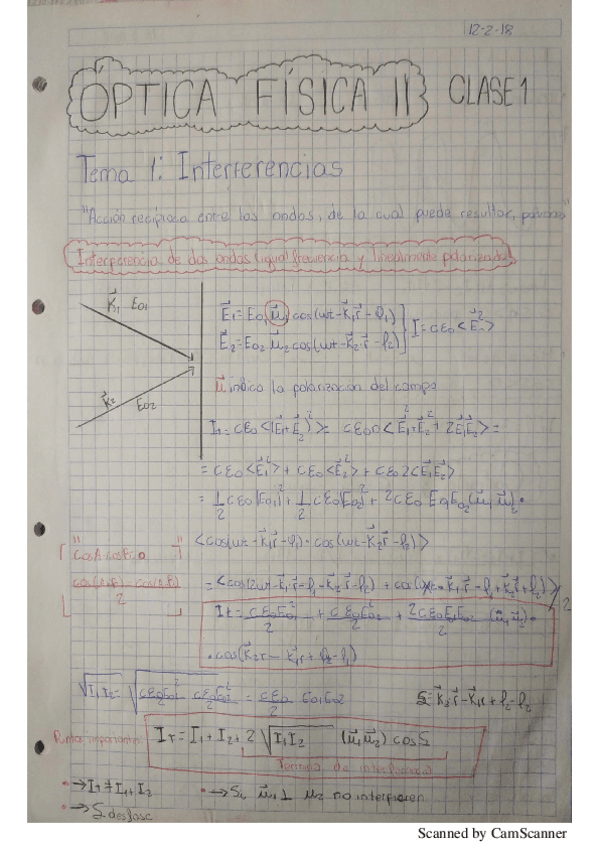 12-2-18
ÓPTICA FÍSICA II CLASE 1
Tema 1: Interferencias
"Acción recíproca entre las ondas, de la cual puede resultar,
Interferencia de dos ondas (igual frecuencia y linealmente polarizadas)
K⃗₁ E₀₁
E⃗₁ = E₀₁ u⃗₁ cos(ωt - K⃗₁r⃗ - φ₁)
E⃗₂ = E₀₂ u⃗₂ cos(ωt - K⃗₂·r⃗ - φ₂)
I = cε₀<E⃗²>
K⃗₂ E₀₂
u⃗ indica la polarización del campo
= cε₀<E⃗₁²> + cε₀<E⃗₂²> + cε₀2<E⃗₁E⃗₂>
= 1/2 cε₀|E₀₁|² + 1/2 cε₀|E₀₂|² + 2cε₀ E₀₁E₀₂(u⃗₁u⃗₂)·
<cos(ωt - K⃗₁r⃗ - φ₁) · cos(ωt - K⃗₂r⃗ - φ₂)>
I_T = cε₀E₀₁²/2 + cε₀E₀₂²/2 + 2cε₀E₀₁E₀₂/2 (u⃗₁u⃗₂)·
·cos(K⃗₂r - K⃗₁r + φ₂ - φ₁)
√I₁I₂ = √(cε₀E₀₁²/2 cε₀E₀₂²/2) = cε₀/2 E₀₁E₀₂
Puntos importantes:
I_T = I₁ + I₂ + 2√I₁I₂ (u⃗₁u⃗₂) cosδ
Término de interferencia
• → I_T ≠ I₁ + I₂
• → Si u⃗₁ ⊥ u₂ no interfieren
• → δ desfase
Scanned by CamScanner